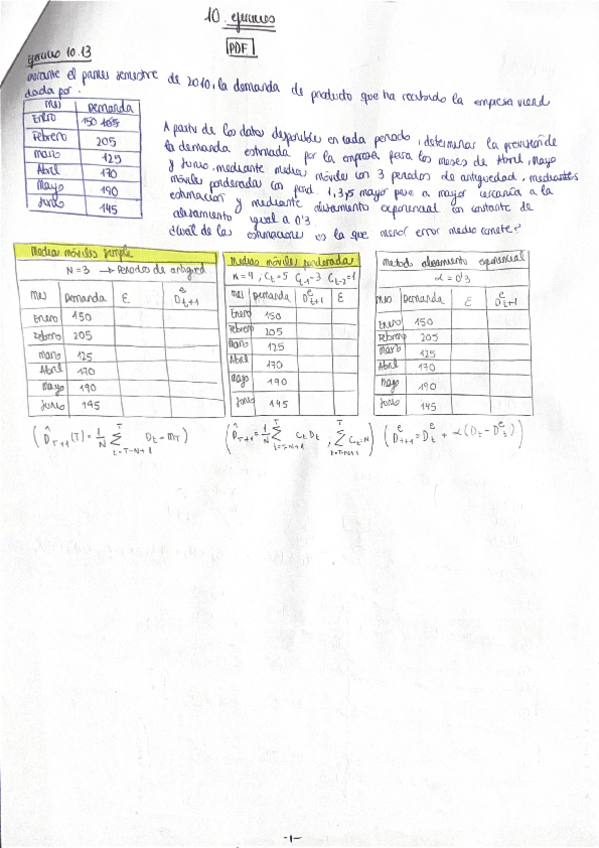 10. ejercicios
PDF
ejercicio 10.13
Durante el primer semestre de 2010, la demanda de producto que ha recibido la empresa viend
dada por:
mes Demanda
Enero 150
Febrero 205
marzo 125
Abril 170
mayo 190
Junio 145
A partir de los datos disponibles en cada periodo, determinar la previsión de
la demanda estimada por la empresa para los meses de Abril, mayo
y Junio. mediante medias móviles con 3 periodos de antiguedad, mediantes
móviles ponderadas con pond. 1,3,5 mayor peso a mayor cercanía a la
estimación y mediante alisamiento exponencial con constante de
alisamiento igual a 0'3.
¿Cuál de las estimaciones es la que menor error medio comete?
Medias móviles simple
N=3 → Periodos de antigued
mes Demanda ε D^e_{t+1}
Enero 150
Febrero 205
marzo 125
Abril 170
mayo 190
Junio 145
(D̂_{T+1}(T) = 1/N Σ_{t=T-N+1}^{T} D_t = m_T)
Medias móviles ponderadas
N=9, C_t=5 C_{t-1}=3 C_{t-2}=1
mes Demanda D^e_{t+1} ε
Enero 150
Febrero 205
marzo 125
Abril 170
mayo 190
Junio 145
(D̂_{T+1} = 1/N Σ_{t=T-N+1}^{T} C_t D_t, Σ_{t=T-N+1}^{T} C_t=N)
metodo alisamiento exponencial
α = 0'3
mes Demanda ε D^e_{t+1}
Enero 150
Febrero 205
marzo 125
Abril 170
mayo 190
Junio 145
(D^e_{t+1} = D^e_t + α(D_t - D^e_t))
-1-